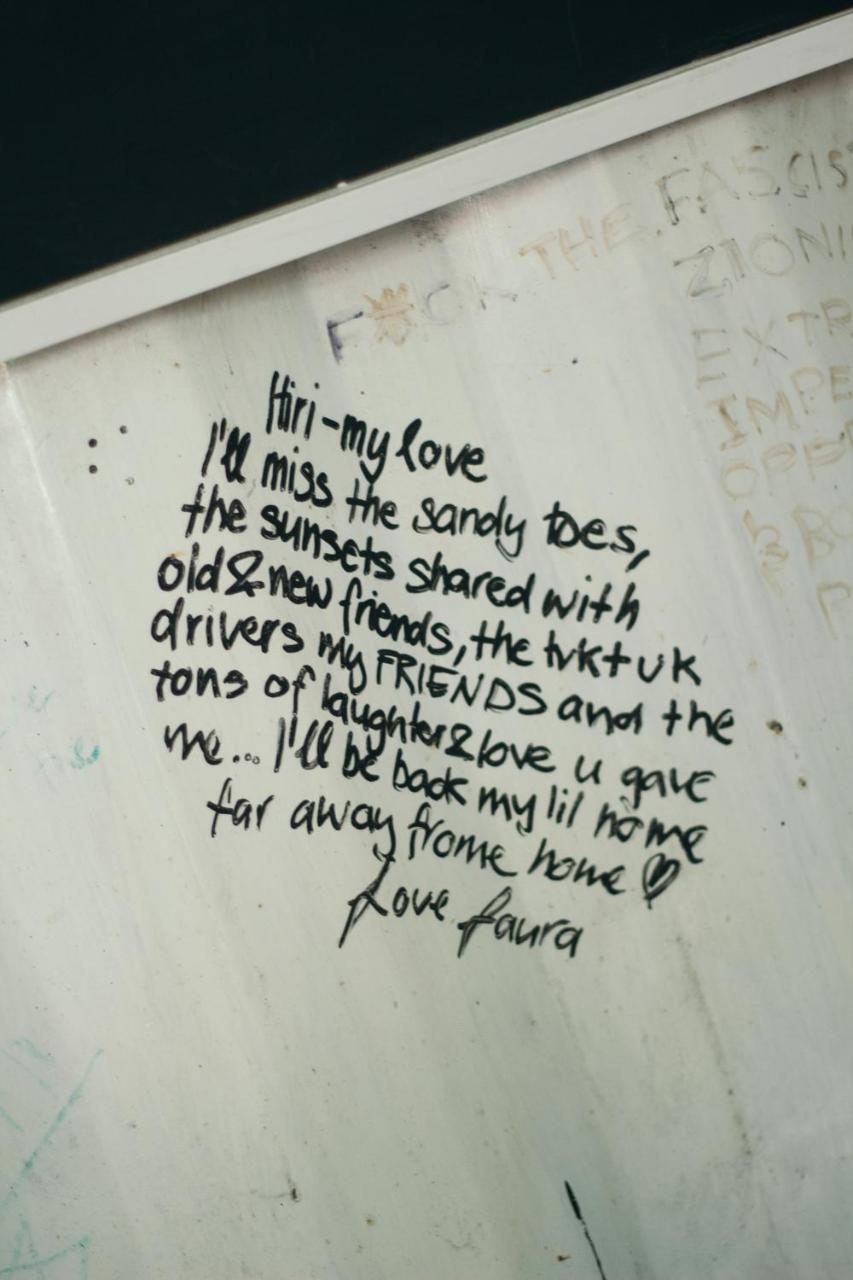 F*CK THE FASCIS
ZIONI
EXTR
IMPE
OPP
& BO
P
Hiri-my love
I'll miss the sandy toes,
the sunsets shared with
old & new friends, the tvktuk
drivers my FRIENDS and the
tons of laughter & love u gave
me... I'll be back my lil home
far away frome home ♡
Love Laura